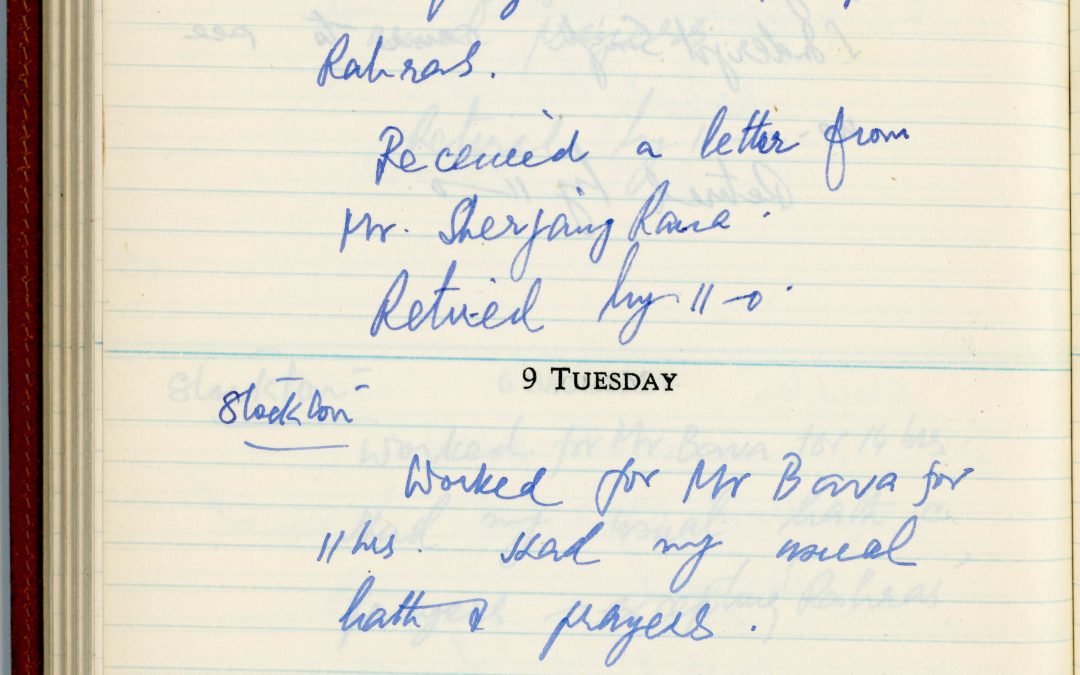 Rahras.
Received a letter from
Mr. Sherjang Rana.
Retired by 11-0.
9 TUESDAY
Stockton-
Worked for Mr Bava for
11 hrs. Had my usual
bath & prayers.